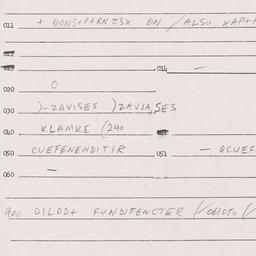 011 + GONS+PARN Z3X ON / ALSO XAP+A
014 —
020 O
030 )-ZAVISES )ZAVJA,SES
040 KLAMKE (240
050 CUEFENENDITIR 051 — QCUEF
060 —
900 DILOD+ FUNDIFENCTER (/061050 (/